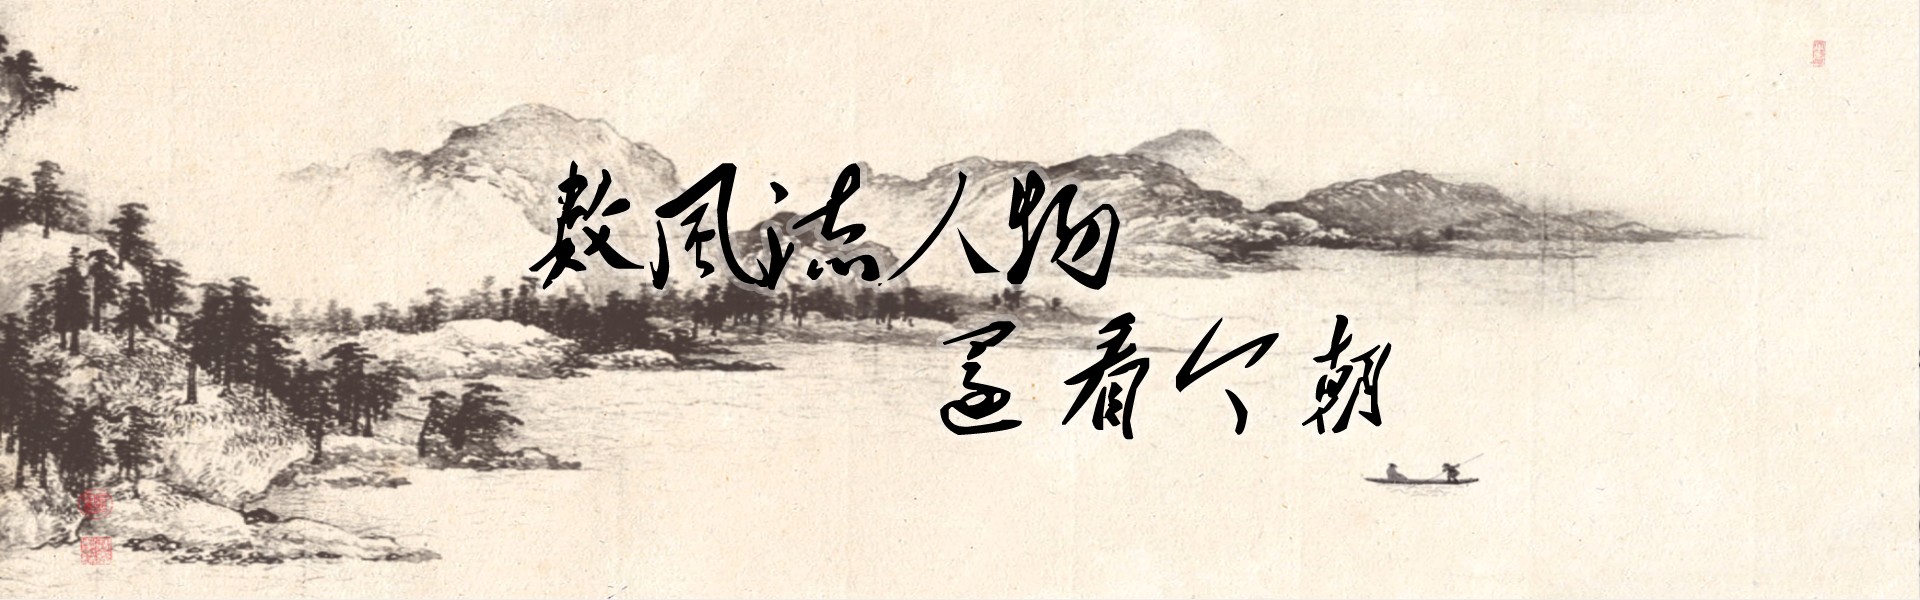 数风流人物
还看今朝